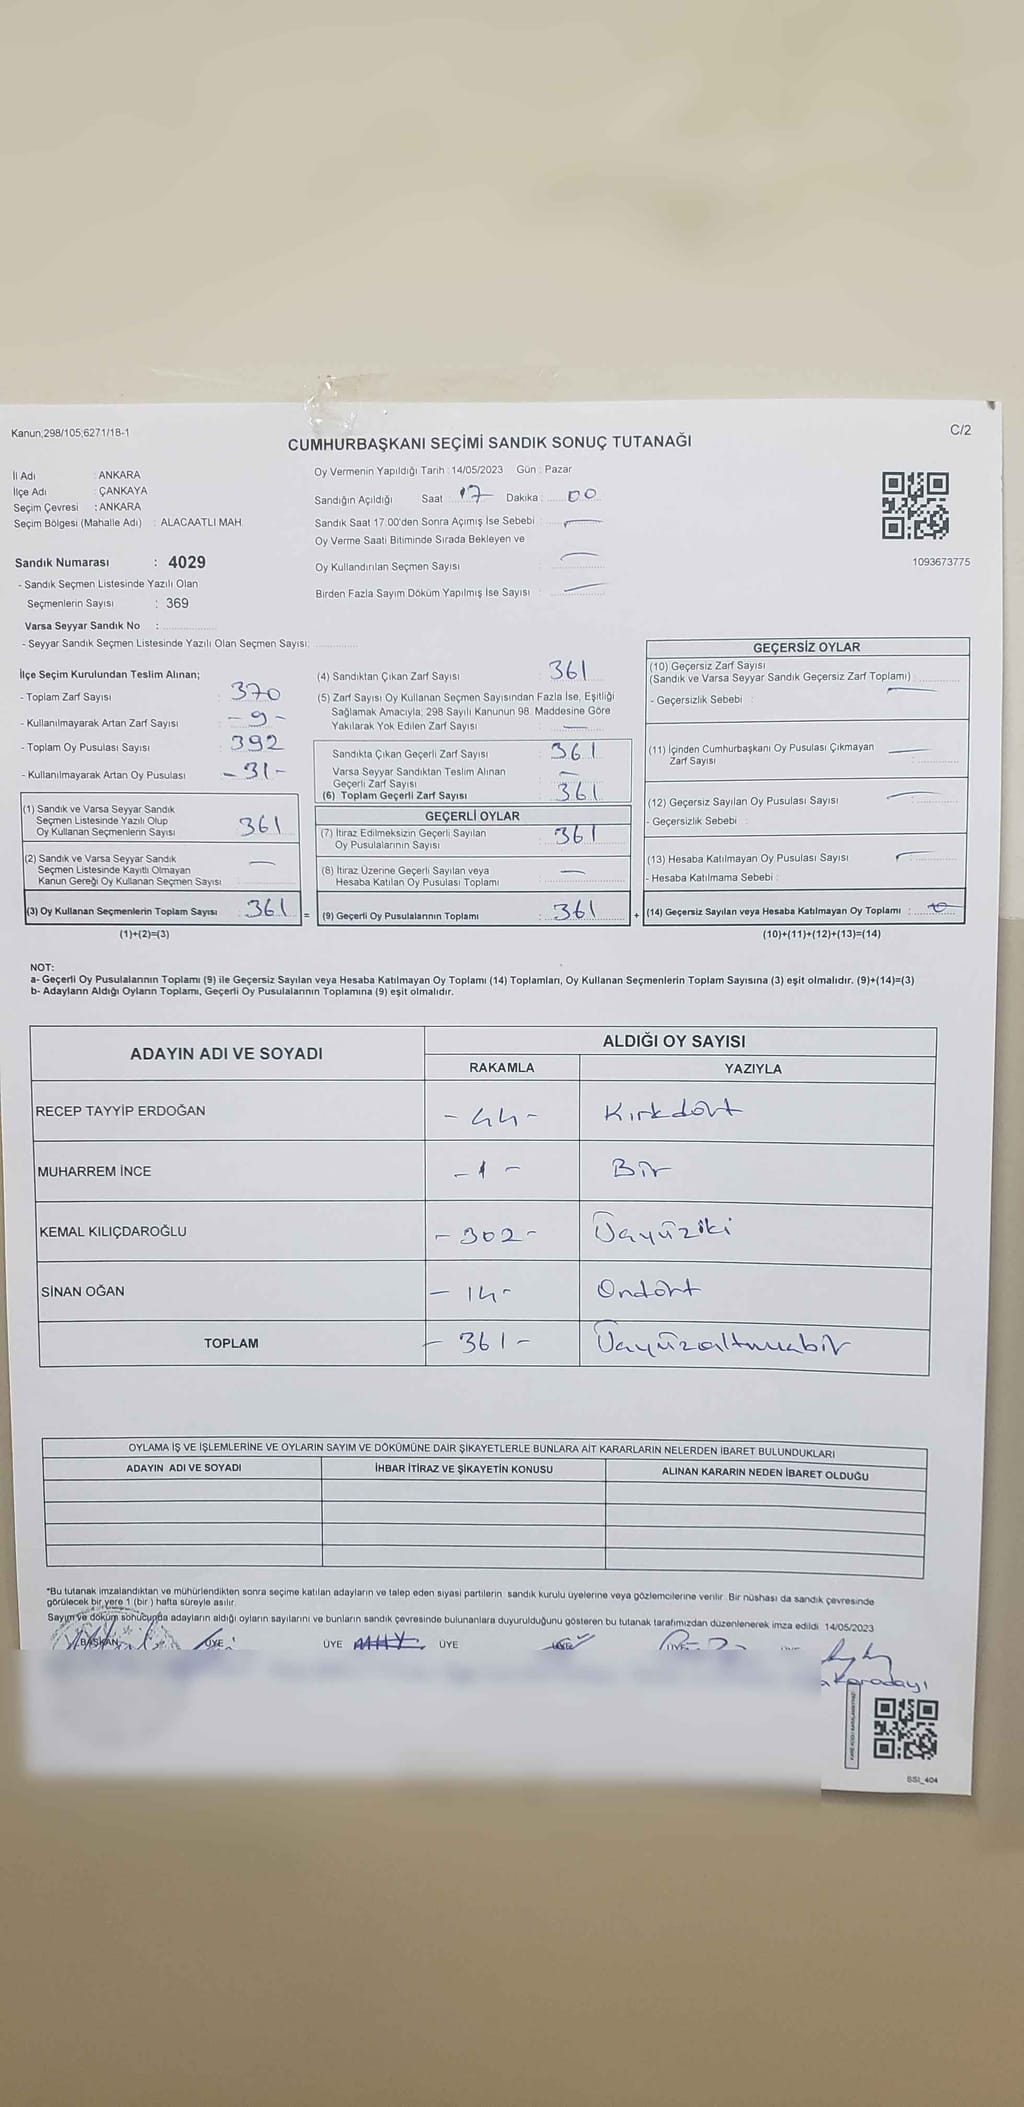 Kanun;298/105;6271/18-1
C/2
CUMHURBAŞKANI SEÇİMİ SANDIK SONUÇ TUTANAĞI
İl Adı : ANKARA
İlçe Adı : ÇANKAYA
Seçim Çevresi : ANKARA
Seçim Bölgesi (Mahalle Adı) : ALACAATLI MAH.
Oy Vermenin Yapıldığı Tarih : 14/05/2023 Gün : Pazar
Sandığın Açıldığı Saat 17 Dakika : 00
Sandık Saat 17:00'den Sonra Açımış İse Sebebi : —
Oy Verme Saati Bitiminde Sırada Bekleyen ve
Oy Kullandırılan Seçmen Sayısı : —
Birden Fazla Sayım Döküm Yapılmış İse Sayısı : —
1093673775
Sandık Numarası : 4029
- Sandık Seçmen Listesinde Yazılı Olan
Seçmenlerin Sayısı : 369
Varsa Seyyar Sandık No :
- Seyyar Sandık Seçmen Listesinde Yazılı Olan Seçmen Sayısı:
İlçe Seçim Kurulundan Teslim Alınan;
- Toplam Zarf Sayısı : 370
- Kullanılmayarak Artan Zarf Sayısı : - 9 -
- Toplam Oy Pusulası Sayısı : 392
- Kullanılmayarak Artan Oy Pusulası : - 31 -
(1) Sandık ve Varsa Seyyar Sandık
Seçmen Listesinde Yazılı Olup
Oy Kullanan Seçmenlerin Sayısı : 361
(2) Sandık ve Varsa Seyyar Sandık
Seçmen Listesinde Kayıtlı Olmayan
Kanun Gereği Oy Kullanan Seçmen Sayısı : —
(3) Oy Kullanan Seçmenlerin Toplam Sayısı : 361 =
(1)+(2)=(3)
(4) Sandıktan Çıkan Zarf Sayısı : 361
(5) Zarf Sayısı Oy Kullanan Seçmen Sayısından Fazla İse, Eşitliği
Sağlamak Amacıyla; 298 Sayılı Kanunun 98. Maddesine Göre
Yakılarak Yok Edilen Zarf Sayısı : —
Sandıkta Çıkan Geçerli Zarf Sayısı : 361
Varsa Seyyar Sandıktan Teslim Alınan
Geçerli Zarf Sayısı : —
(6) Toplam Geçerli Zarf Sayısı : 361
GEÇERLİ OYLAR
(7) İtiraz Edilmeksizin Geçerli Sayılan
Oy Pusulalarının Sayısı : 361
(8) İtiraz Üzerine Geçerli Sayılan veya
Hesaba Katılan Oy Pusulası Toplamı : —
(9) Geçerli Oy Pusulalarının Toplamı : 361 +
GEÇERSİZ OYLAR
(10) Geçersiz Zarf Sayısı
(Sandık ve Varsa Seyyar Sandık Geçersiz Zarf Toplamı) : —
- Geçersizlik Sebebi :
(11) İçinden Cumhurbaşkanı Oy Pusulası Çıkmayan
Zarf Sayısı : —
(12) Geçersiz Sayılan Oy Pusulası Sayısı : —
- Geçersizlik Sebebi :
(13) Hesaba Katılmayan Oy Pusulası Sayısı : —
- Hesaba Katılmama Sebebi :
(14) Geçersiz Sayılan veya Hesaba Katılmayan Oy Toplamı :
(10)+(11)+(12)+(13)=(14)
NOT:
a- Geçerli Oy Pusulalarının Toplamı (9) ile Geçersiz Sayılan veya Hesaba Katılmayan Oy Toplamı (14) Toplamları, Oy Kullanan Seçmenlerin Toplam Sayısına (3) eşit olmalıdır. (9)+(14)=(3)
b- Adayların Aldığı Oyların Toplamı, Geçerli Oy Pusulalarının Toplamına (9) eşit olmalıdır.
ADAYIN ADI VE SOYADI
ALDIĞI OY SAYISI
RAKAMLA YAZIYLA
RECEP TAYYİP ERDOĞAN - 44 - Kırkdört
MUHARREM İNCE - 1 - Bir
KEMAL KILIÇDAROĞLU - 302 - Üçyüziki
SİNAN OĞAN - 14 - Ondört
TOPLAM - 361 - Üçyüzaltmışbir
OYLAMA İŞ VE İŞLEMLERİNE VE OYLARIN SAYIM VE DÖKÜMÜNE DAİR ŞİKAYETLERLE BUNLARA AİT KARARLARIN NELERDEN İBARET BULUNDUKLARI
ADAYIN ADI VE SOYADI İHBAR İTİRAZ VE ŞİKAYETİN KONUSU ALINAN KARARIN NEDEN İBARET OLDUĞU
*Bu tutanak imzalandıktan ve mühürlendikten sonra seçime katılan adayların ve talep eden siyasi partilerin sandık kurulu üyelerine veya gözlemcilerine verilir. Bir nüshası da sandık çevresinde
görülecek bir yere 1 (bir ) hafta süreyle asılır.
Sayım ve döküm sonucunda adayların aldığı oyların sayılarını ve bunların sandık çevresinde bulunanlara duyurulduğunu gösteren bu tutanak tarafımızdan düzenlenerek imza edildi. 14/05/2023
BAŞKAN ÜYE ÜYE ÜYE ÜYE ÜYE
Karadayı
BSI_404